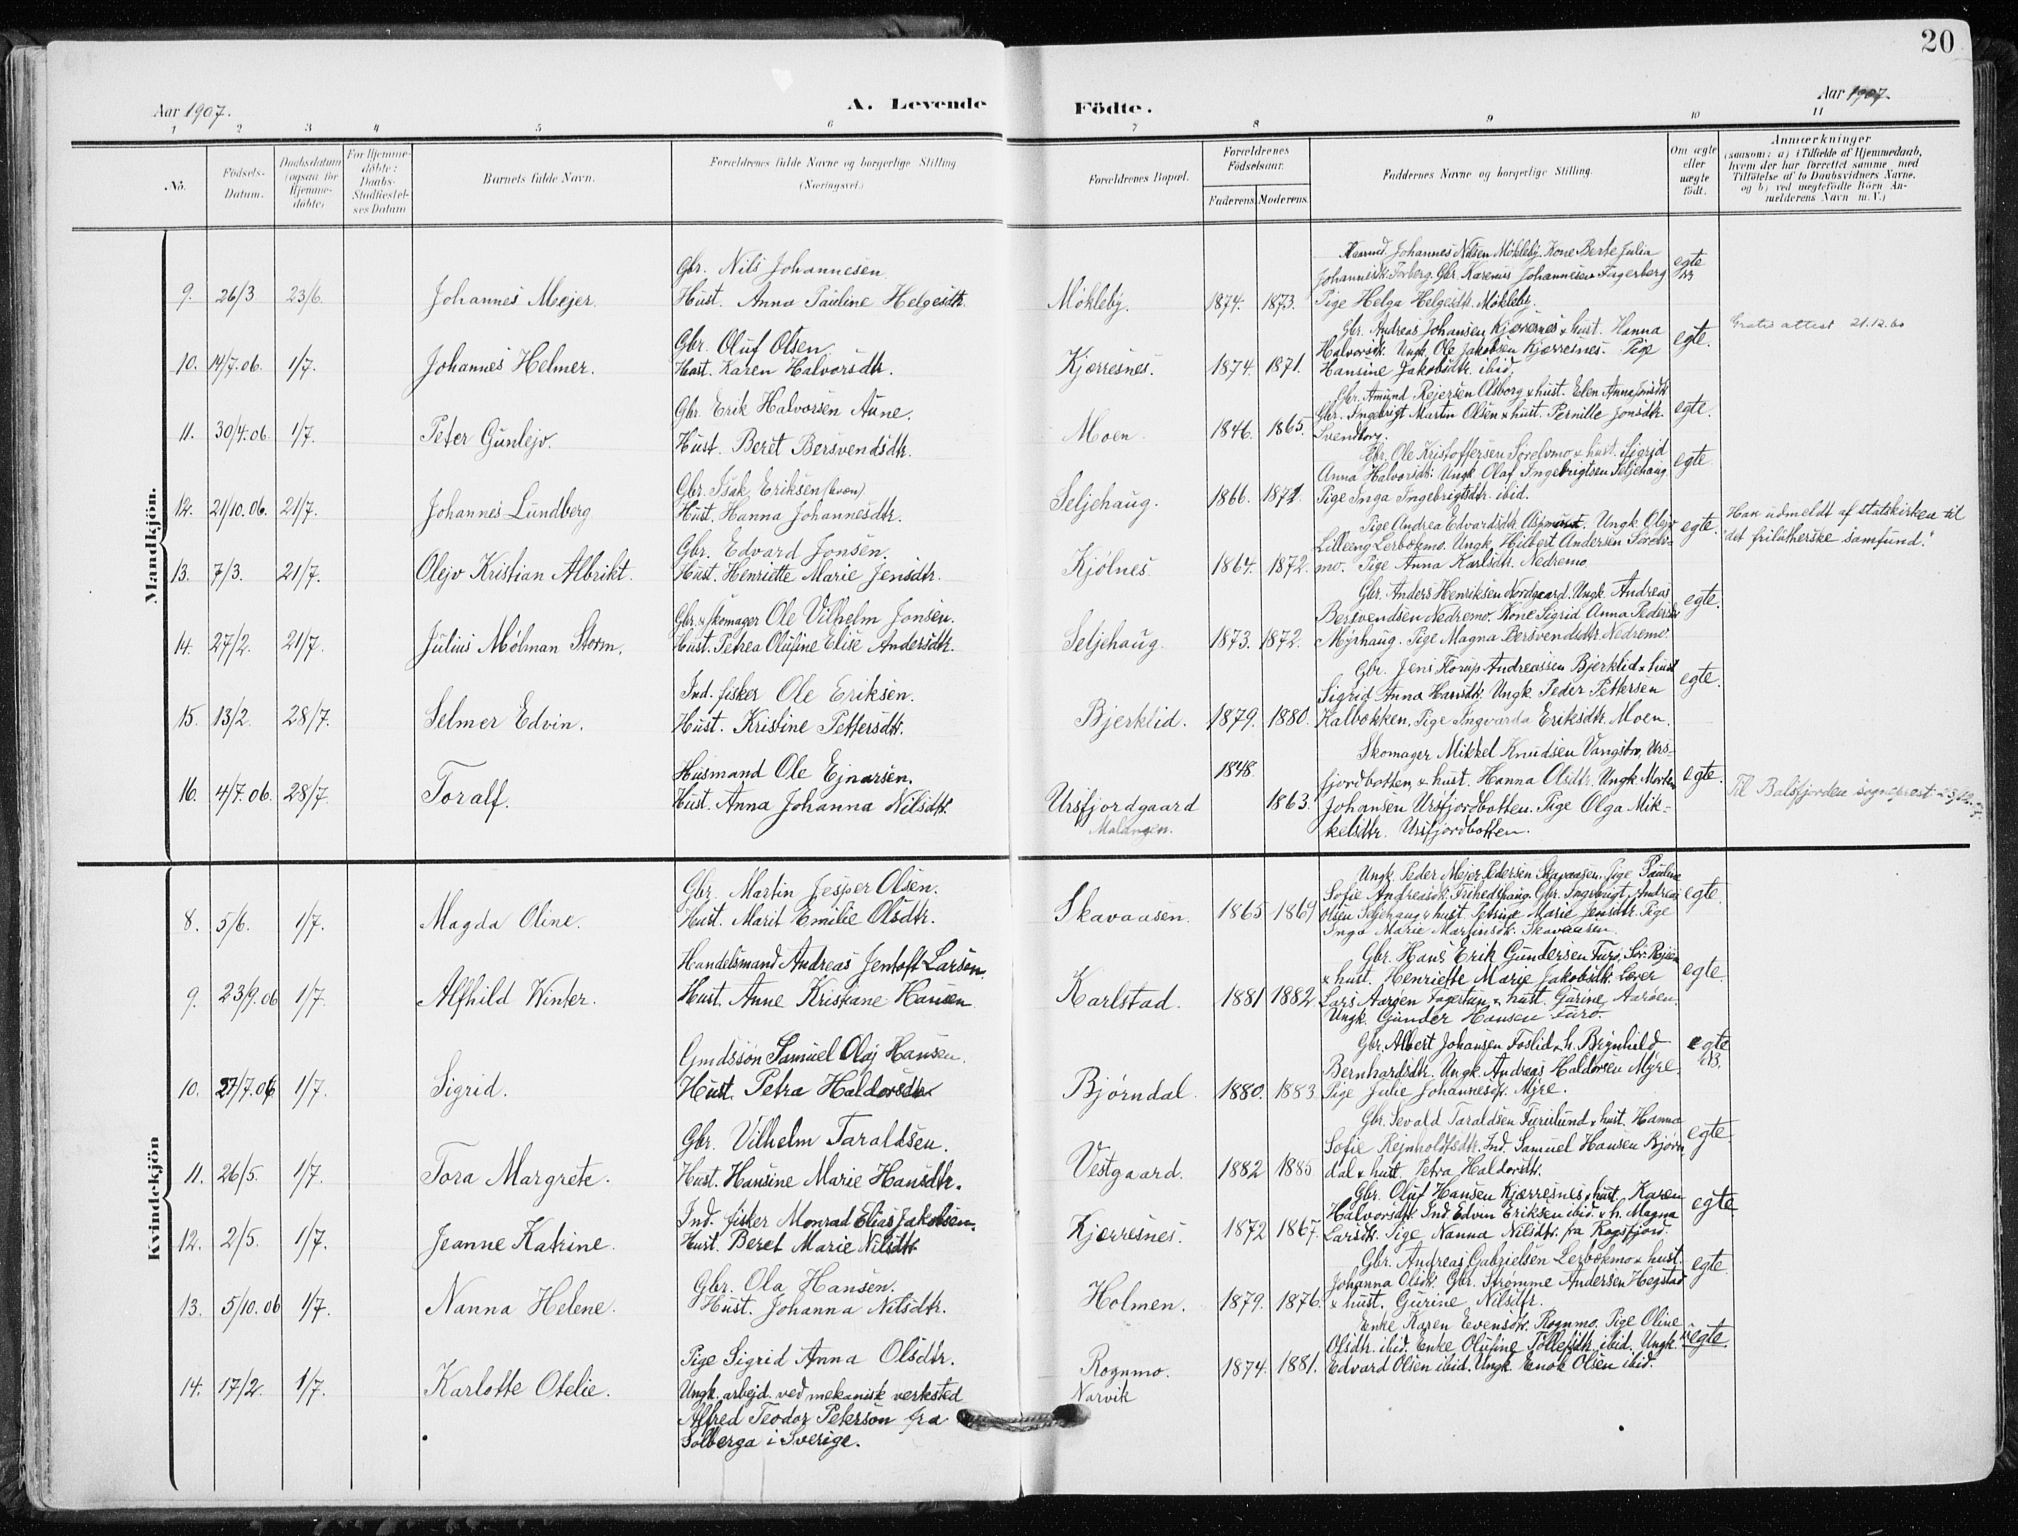 20
Aar 1907.
A. Levende Födte.
Aar 1907.
1 2 3 4 5 6 7 8 9 10 11
No.
Födsels-
Datum.
Daabsdatum
(ogsaa for
Hjemme-
döbte)
For Hjemme-
döbte:
Daabs-
Stadfæstel-
ses Datum
Barnets fulde Navn.
Forældrenes fulde Navne og borgerlige Stilling
(Næringsvei.)
Forældrenes Bopæl.
Forældrenes
Födselsaar.
Faderens Moderens.
Faddernes Navne og borgerlige Stilling.
Om ægte
eller
uægte
födt.
Anmærkninger
(saasom: a) i Tilfælde af Hjemmedaab,
hvem der har forrettet samme med
Tilföielse af to Daabsvidners Navne,
og b) ved uægtefödte Börn An-
melderens Navn m. V.)
Mandkjön.
9. 26/3 23/6. Johannes Mejer.
Gbr. Nils Johannesen
Hust. Anna Pauline Helgesdtr.
Møkleby. 1874. 1873.
Johannes Nilsen Møkleby. Kone Berte Julia
Johannesdtr. Forberg. Gbr. Karenius Johannesen Fagerberg
Pige Helga Helgesdtr. Møkleby.
egte
10. 14/7.06. 1/7. Johannes Helmer.
Gbr. Oluf Olsen
Hust. Karen Halvorsdtr.
Kjærresnes. 1874. 1871.
Gbr. Andreas Johansen Kjærresnes & hust. Hanna
Halvorsdtr. Ungk. Ole Jakobsen Kjærresnes. Pige
Hansine Jakobsdtr. ibid.
egte.
Gratis attest 21.12.60
11. 30/4.06 1/7. Peter Gunlejv.
Gbr. Erik Halvorsen Aune.
Hust. Beret Bersvendsdtr.
Moen 1846. 1865.
Gbr. Amund Rejersen Olsborg & hust. Elen Anna Jensdtr
Gbr. Ingebrigt Martin Olsen & hust. Pernille Jonsdtr.
Svendborg.
egte.
12. 21/10.06. 21/7. Johannes Lundberg
Gbr. Isak Eriksen (kvæn)
Hust. Hanna Johannesdtr.
Seljehaug. 1866. 1871.
Gbr. Ole Kristoffersen Sørelvmo & hust. Sigrid
Anna Halvorsdtr. Ungk. Olaf Ingebrigtsen Seljehaug
Pige Inga Ingebrigtsdtr. ibid.
egte
13. 7/3. 21/7. Olejv Kristian Albrikt.
Gbr. Edvard Jonsen.
Hust. Henriette Marie Jensdtr.
Kjølnes 1864. 1872.
Pige Andrea Edvardsdtr. Ungk. Olejv
Lilleeng Lerbokmo. Ungk. Hilbert Andersen Sørelv-
mo. Pige Anna Karlsdtr. Nedremo.
egte.
Han udmeldt af statskirken til
"det frilutherske samfund."
14. 27/2. 21/7. Julius Mölman Storm.
Gbr. & skomager Ole Vilhelm Jonsen.
Hust. Petrea Olufine Elise Andersdtr.
Seljehaug. 1873. 1872.
Gbr. Anders Henriksen Nordgaard. Ungk. Andreas
Bersvendsen Nedremo. Kone Sigrid Anna Pedersdtr
Myrhaug. Pige Magna Bersvendsdtr. Nedremo.
egte.
15. 13/2. 28/7. Selmer Edvin.
Ind. fisker Ole Eriksen.
Hust. Kristine Pettersdtr.
Bjerklid. 1879. 1880.
Gbr. Jens Andreassen Bjerklid & hust
Sigrid Anna Hansdtr. Ungk. Peder Pettersen
Kalbokken. Pige Ingvarda Eriksdtr. Moen.
egte.
16. 4/7.06. 28/7. Toralf.
Husmand Ole Ejnarsen.
Hust. Anna Johanna Nilsdtr.
Ursfjordgaard
Malangen.
1848 1863.
Skomager Mikkel Knudsen Vangsbro, Urs-
fjordbotten, & hust. Hanna Olsdtr. Ungk. Morten
Johansen Ursfjordbotten. Pige Olga Mik-
kelsdtr. Ursfjordbotten.
egte.
Til Balsfjorden sogneprest
Kvindekjön
8. 5/6. 1/7. Magda Oline.
Gbr. Martin Jesper Olsen.
Hust. Marit Emilie Olsdtr.
Skavaasen. 1865 1869
Ungk. Peder Mejer Pedersen Skavaasen. Pige Pauline
Sofie Andreasdtr. Frihedshaug. Gbr. Ingebrigt Andreas
Olsen Seljehaug & hust. Petrine Marie Jensdtr. Pige
Inga Marie Martinsdtr. Skavaasen.
egte.
9. 23/9.06 1/7. Alfhild Winter.
Handelsmand Andreas Jentoft Larsen.
Hust. Anne Kristiane Hansen
Karlstad. 1881 1882
Gbr. Hans Erik Gundersen Furo, Sör-Rejsen
& hust. Henriette Marie Jakobsdtr. Lærer
Lars Aargen Fagertun & hust. Gurine Aarøen.
Ungk. Gunder Hansen Furo.
egte.
10. 27/7.06 1/7. Sigrid.
Gmdssøn Samuel Olaj Hansen.
Hust. Petra Haldorsdtr
Bjørndal. 1880. 1883.
Gbr. Albert Johansen Foslid & h. Brynhild
Bernhardsdtr. Ungk. Andreas Haldorsen Myre.
Pige Julie Johannesdtr. Myre.
egte
11. 26/5. 1/7. Tora Margrete.
Gbr. Vilhelm Taraldsen.
Hust. Hansine Marie Hansdtr.
Vestgaard. 1882 1885
Gbr. Sevald Taraldsen Furulund & hust. Hanna
Sofie Rejnholdtsdtr. Ind. Samuel Hansen Bjørn
dal & hust. Petra Haldorsdtr.
egte
12. 2/5. 1/7. Jeanne Katrine.
Ind. fisker Monrad Elias Jakobsen.
Hust. Beret Marie Nilsdtr
Kjærresnes. 1872 1867.
Gbr. Oluf Hansen Kjærresnes & hust. Karen
Halvorsdtr. Ind. Edvin Eriksen ibid. & h. Magna
Larsdtr. Pige Nanna Nilsdtr. fra Rossfjord.
egte
13. 5/10.06 1/7. Nanna Helene.
Gbr. Ola Hansen.
Hust. Johanna Nilsdtr.
Holmen. 1879. 1876.
Gbr. Andreas Gabrielsen Lerbokmo & hust.
Johanna Olsdtr. Gbr. Strømme Andersen Hegstad
& hust. Gurine Nilsdtr.
egte
14. 17/2. 1/7. Karlotte Otelie.
Pige Sigrid Anna Olsdtr.
Ungk. arbejd. ved mekanisk verksted
Alfred Teodor Peterson fra
Solberga i Sverige.
Rognmo.
Narvik
1874. 1881.
Enke Karen Evensdtr. Rognmo. Pige Oline
Olsdtr. ibid. Enke Olufine Tollefsdtr. ibid. Ungk.
Edvard Olsen ibid. Ungk. Enok Olsen ibid.
uegte